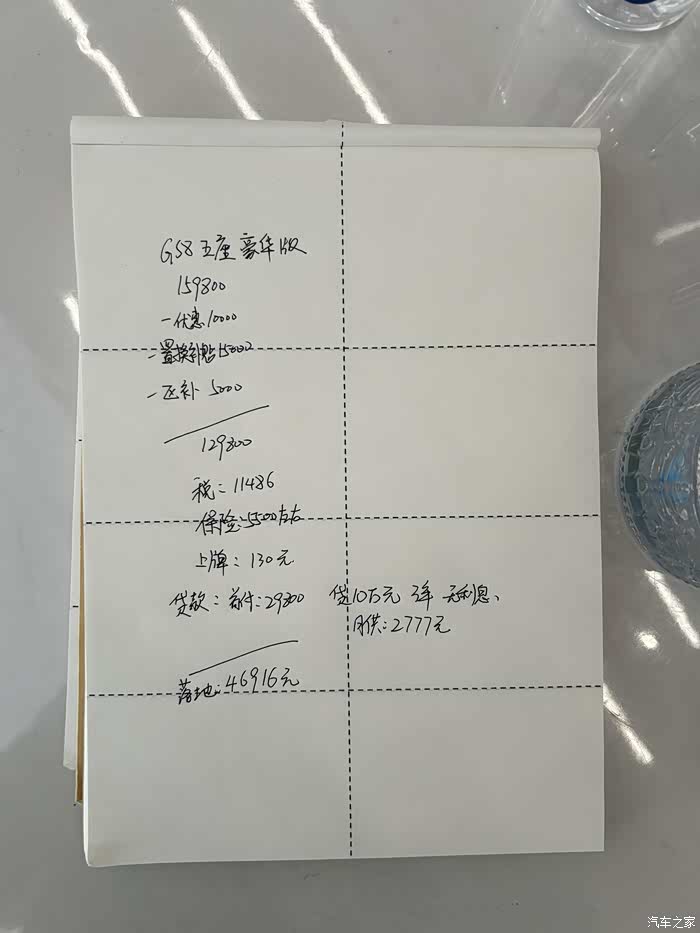 GS8 五座 豪华版
159800
-优惠10000
-置换补贴15000
-区补 5000
129800
税：11486
保险：5500左右
上牌：130元
贷款：首付：29800 贷10万元 3年 无利息、
月供：2777元
落地：46916元
汽车之家